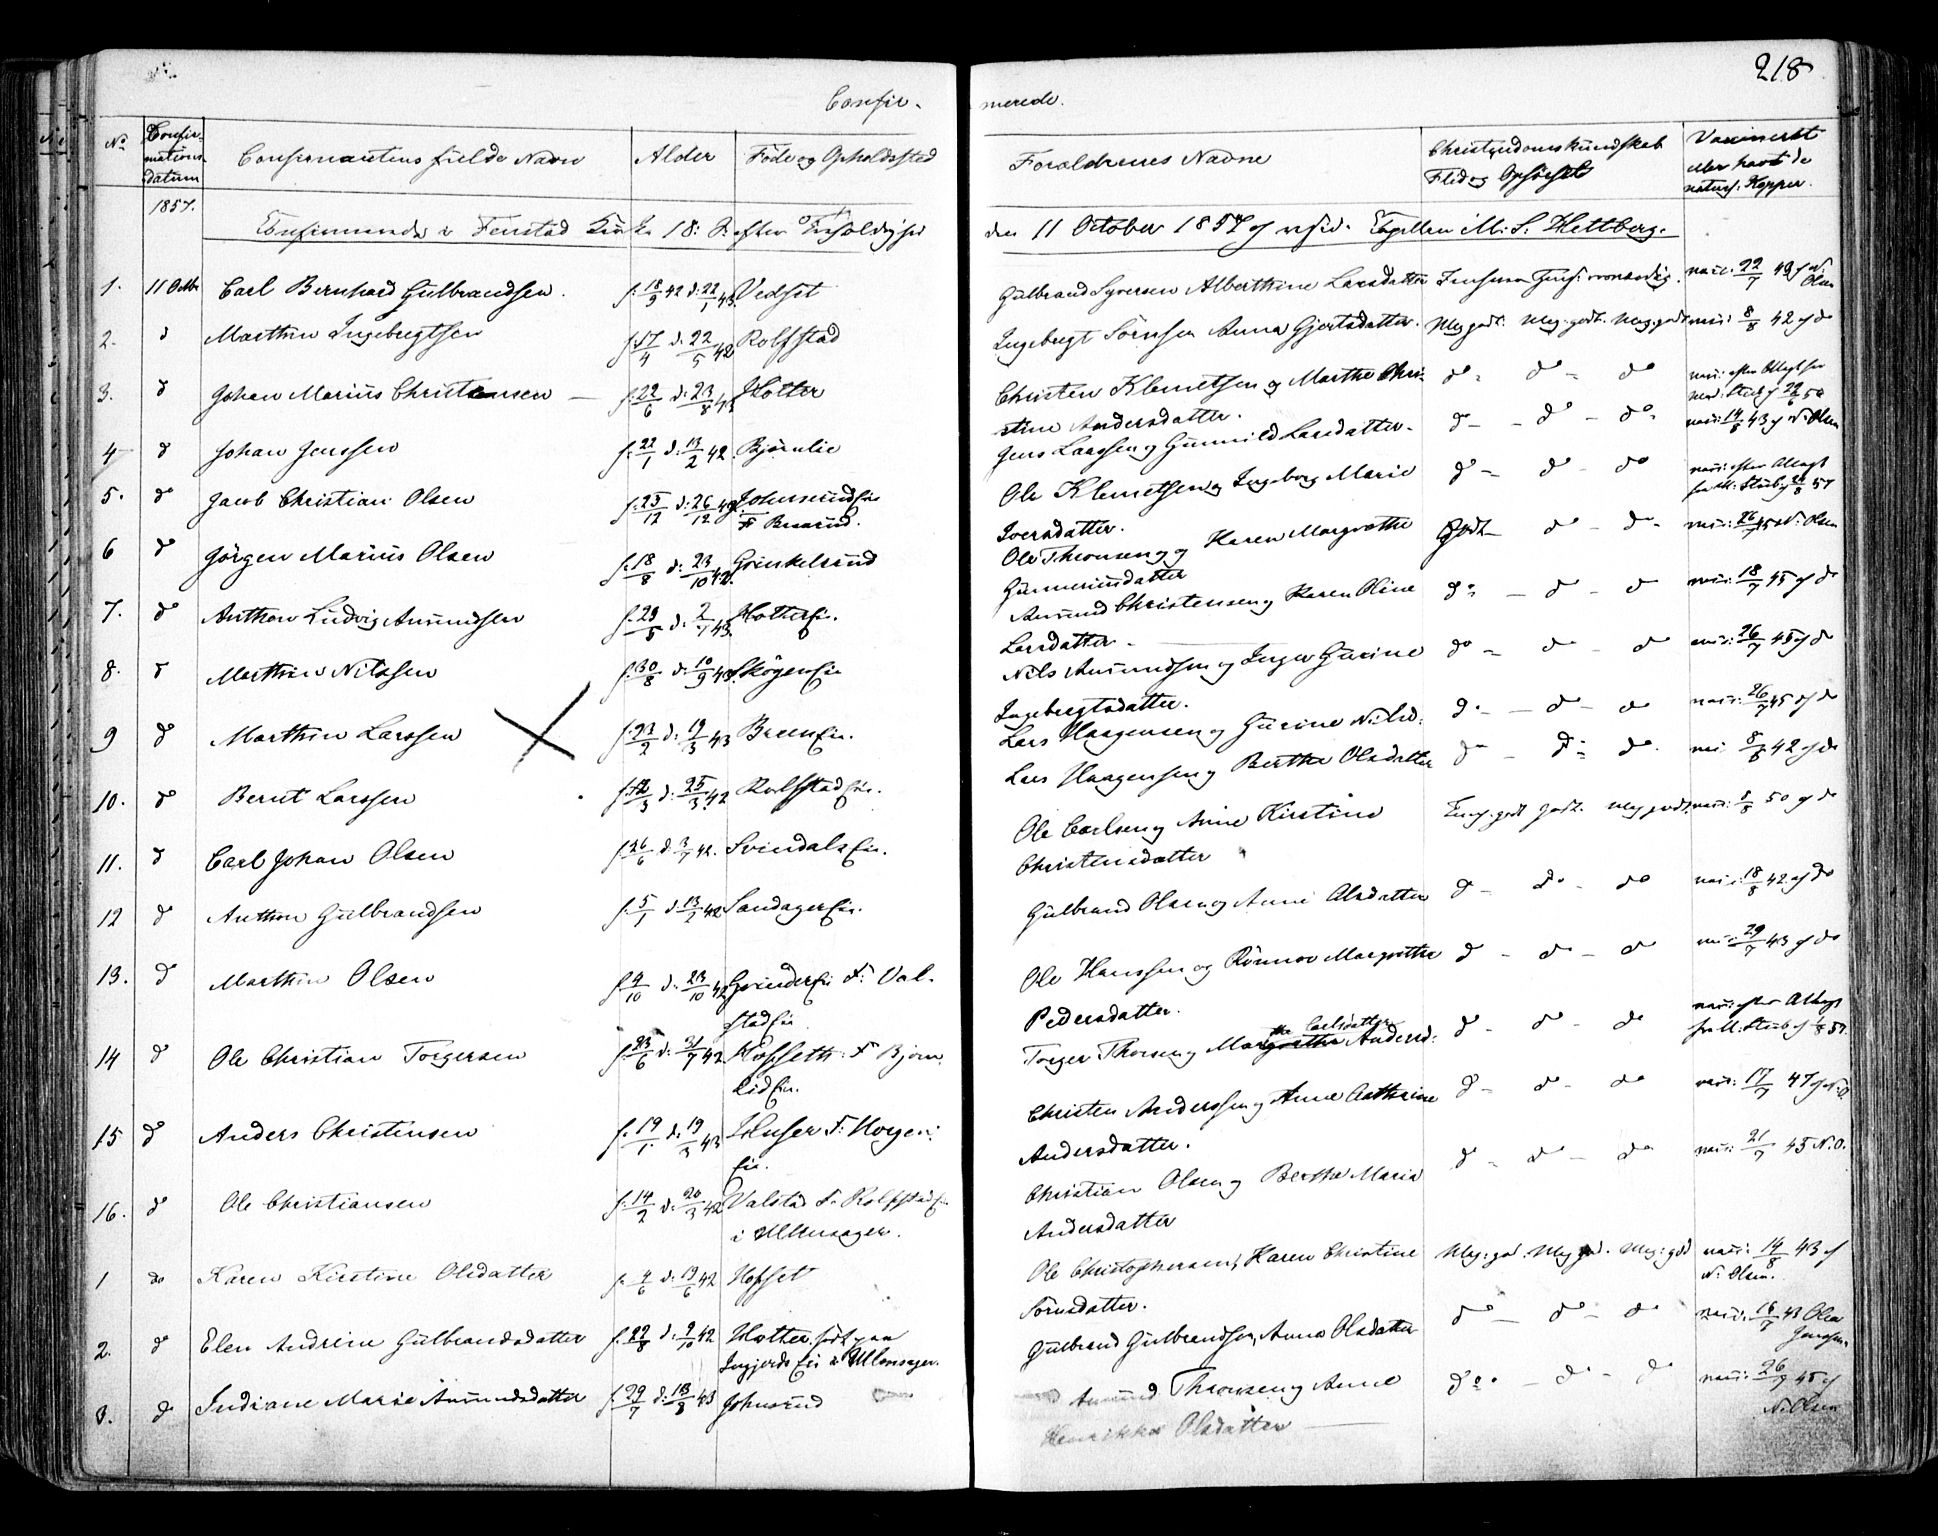 218
Confir-
merede.
No
Confir-
mations
datum
Confirmantens fulde Navn
Alder
Føde og Opholdssted
Forældrenes Navne
Christendomskundskab
Flid og Opførsel
Vaccineret
eller havt de
naturl. Kopper.
1857.
Confirmerede i Fenstad Kirke 18: S. efter
den 11 October 1857 af resid. Capellan M. S. Heltberg.
1. 11 Octbr Carl Bernhard Gulbrandsen. f. 18/9 42 d. 22/1 43. Vedset
Gulbrand Syversen Alberthine Larsdatter vacc: 22/7 49 af N.
Olsen
2. do Marthin Ingebregtsen f. 17/4 d. 22/5 42 Rolfstad
Ingebregt Sörnsen Anna Gjertsdatter. Meg godt. Meg. godt. Meg. godt vacc: 8/8 42 af do
3. do Johan Marius Christensen f. 22/6 d. 23/8 43 Hotter
Christen Klemetsen og Marthe Chri- do do do vacc: efter Attest fra
stine Andersdatter.
4 do Johan Jenssen f. 22/1 d. 13/2 42. Bjørnlie
Jens Larssen og Gunnild Larsdatter. do do do vacc: 14/8 43 af N. Olsen
5. do Jacob Christian Olsen f. 25/12 d. 26/12 Johnsrud Eie
F Bearud.
Ole Klemetsen og Ingeborg Marie do do do vacc: efter Attest
Iversdatter.
6 do Jörgen Marius Olsen f. 18/8 d. 23/10 42. Grinkelsrud
Ole Thronsen og Karen Margrethe Godt do do vacc: 26/7 45 N. Olsen
Gunneriusdatter
7. do Anthon Ludvig Amundsen f. 29/5 d. 2/7 43 Hotter Eie.
Amund Christensen og Karen Oline do do do vacc: 18/7 45 af do
Larsdatter.
8. do Marthin Nilssen f. 30/8 d. 10/9 43 Skogen Eie
Nils Amundsen og Inger Gurine do do do vacc: 26/7 45 af do
Ingebregtsdatter.
9 do Marthin Larssen f. 23/2 d. 19/3 43 Breen Eie.
Lars Haagensen og Gurine Nilsd: do do do vacc: 26/7 45 af do
10. do Bernt Larssen f. 12/3 d. 25/3 42 Rolfstad Eie.
Lars Haagensen og Berthe Olsdatter do do do vacc 8/8 42 af do
11. do Carl Johan Olsen f. 26/6 d. 3/7 42. Svindals Eie.
Ole Carlsen og Anne Kirstine Temg. godt godt. Meg godt vacc: 1/8 50 af do
Christensdatter
12 do Anthon Gulbrandsen f. 5/1 d. 13/2 42 Sandager Eie.
Gulbrand Olsen og Anne Olsdatter do do do vacc: 18/8 42 af do
13. do Marthin Olsen f. 4/10 d. 23/10 42 Grinder Eie F: Val-
stad Eie
Ole Hanssen og Rönnov Margrethe do do do vacc: 29/7 43 af do
Pedersdatter.
14 do Ole Christian Torgersen f. 23/6 d. 31/7 42 Hofseth: F Bjørn
lid Eie.
the Carlsdatter
Torger Thorsen og Margrethe Andersd: do do do vacc: efter Attest
15 do Anders Christensen f. 19/1 d. 19/3 43 Huser F: Horgen:
Eie.
Christen Anderssen og Anne Cathrine do do do vacc: 17/7 47 af N. O.
Andersdatter.
16. do Ole Christiansen f. 14/2 d. 20/3 42 Valstad F. Rolfstad Eie
i Ullensager.
Christian Olsen og Berthe Maria do do do vacc: 21/7 45 N. O.
Andersdatter
1 do Karen Kirstine Olsdatter f. 4/6 d. 19/6 42 Hofset
Ole Christophersen, Karen Christine Meg: god. Meg god. Meg: god vacc: 14/8 43 af
N. Olsen.
Sörnsdatter.
2. do Elen Andrine Gulbrandsdatter f. 22/8 d. 9/10 42 Hotter, født paa
Ingjerds Eie i Ullensager.
Gulbrand Gulbrandsen, Anne Olsdatter do do do vacc: 16/7 43 Olea
3. do Indiane Marie Amundsdatter f. 29/7 d. 13/8 43 Johnsrud
Amund Thronsen og Anne do do do vacc: 26/7 45 af
N. Olsen
Henrikka Olsdatter